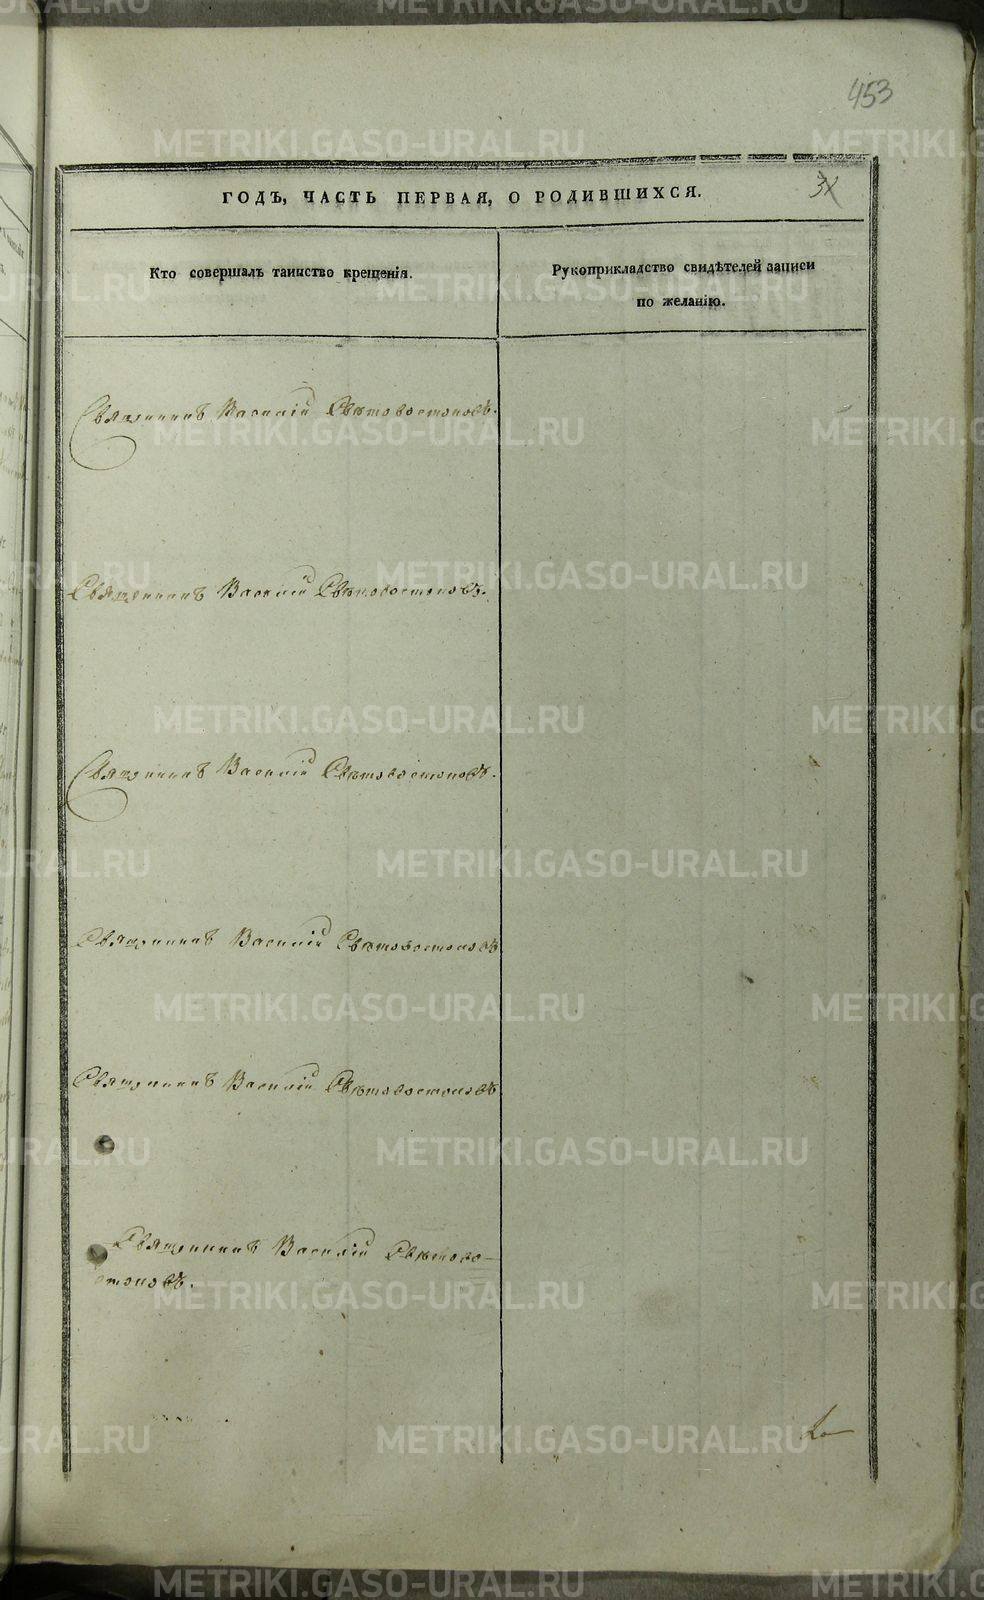 453
ГОДЪ, ЧАСТЬ ПЕРВАЯ, О РОДИВШИХСЯ.
Кто совершалъ таинство крещенія.
Рукоприкладство свидѣтелей записи
по желанію.
Священникъ Василій Свѣтовостоковъ.
Священникъ Василій Свѣтовостоковъ.
Священникъ Василій Свѣтовостоковъ.
Священникъ Василій Свѣтовостоковъ
Священникъ Василій Свѣтовостоковъ
Священникъ Василій Свѣтово-
стоковъ.
METRIKI.GASO-URAL.RU